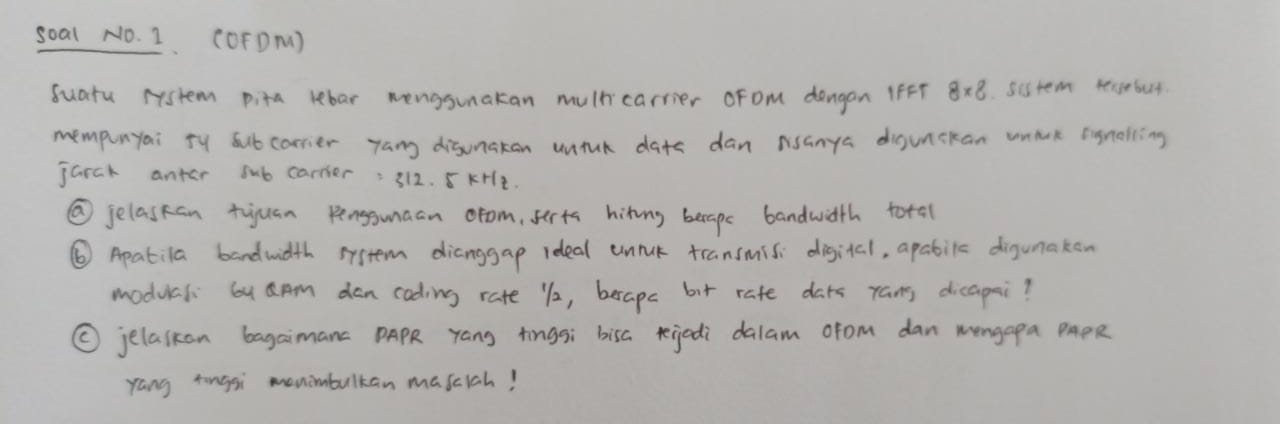 Soal No. 1 (OFDM)
Suatu system pita lebar menggunakan multi carrier OFDM dengan IFFT 8x8. sistem tersebut.
mempunyai 54 sub carrier yang digunakan untuk data dan sisanya digunakan untuk signalling
jarak antar sub carrier = 312.5 kHz.
(a) jelaskan tujuan Penggunaan OFDM, serta hitung berapa bandwidth total
(b) Apabila bandwidth system dianggap ideal untuk transmisi digital, apabila digunakan
modulasi 64 QAM dan coding rate 1/2, berapa bit rate data yang dicapai?
(c) jelaskan bagaimana PAPR yang tinggi bisa terjadi dalam OFDM dan mengapa PAPR
yang tinggi menimbulkan masalah!